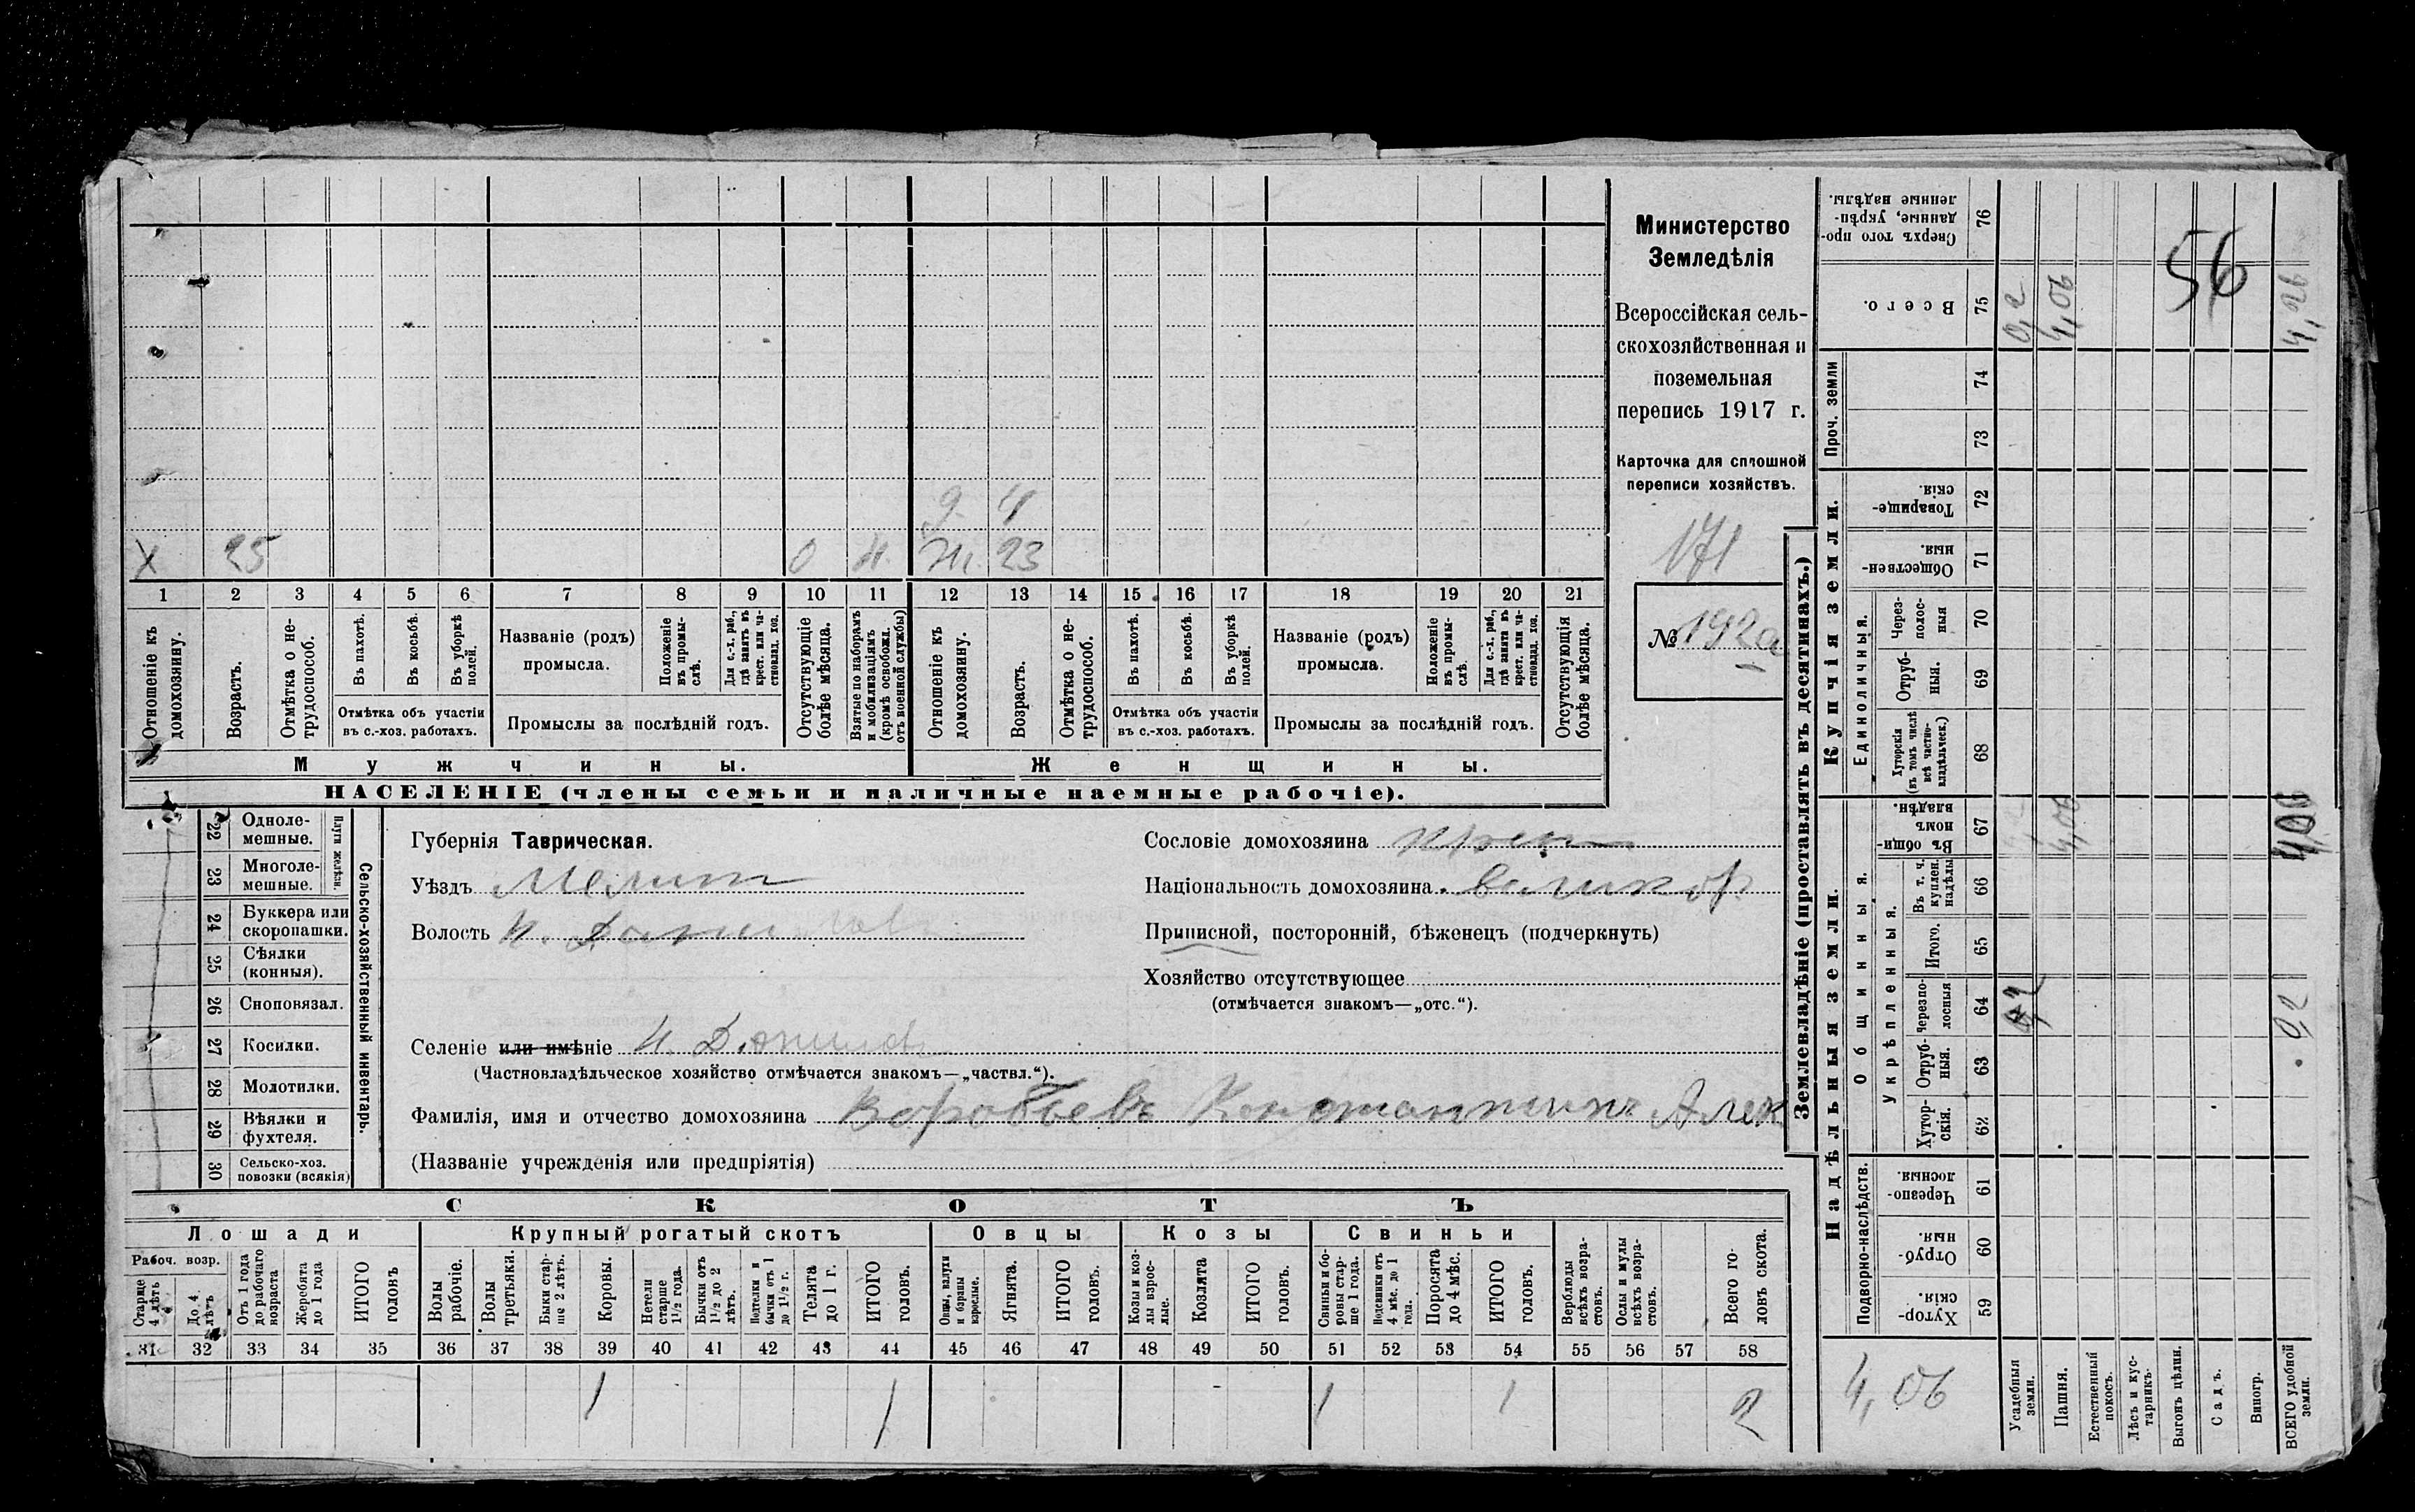 д. 4
х 25 0 н. ж. 23
1 2 3 4 5 6 7 8 9 10 11 12 13 14 15 16 17 18 19 20 21
Отношеніе къ домохозяину.
Возрастъ.
Отмѣтка о не-трудоспособ.
Въ пахотѣ.
Въ косьбѣ.
Въ уборкѣ полей.
Отмѣтка объ участіи
въ с.-хоз. работахъ.
Названіе (родъ)
промысла.
Положеніе въ промы-слѣ.
Для с.-х. раб., гдѣ занятъ въ крест. или ча-стновлад. хоз.
Промыслы за послѣдній годъ.
Отсутствующіе болѣе мѣсяца.
Взятые по наборамъ и мобилизаціямъ (кромѣ освобожд. отъ военной службы)
Отношеніе къ домохозяину.
Возрастъ.
Отмѣтка о не-трудоспособ.
Въ пахотѣ.
Въ косьбѣ.
Въ уборкѣ полей.
Отмѣтка объ участіи
въ с.-хоз. работахъ.
Названіе (родъ)
промысла.
Положеніе въ промы-слѣ.
Для с.-х. раб., гдѣ занята въ крест. или ча-стновлад. хоз.
Промыслы за послѣдній годъ.
Отсутствующія болѣе мѣсяца.
Мужчины. Женщины.
НАСЕЛЕНІЕ (члены семьи и наличные наемные рабочіе).
Министерство
Земледѣлія
Всероссійская сель-
скохозяйственная и
поземельная
перепись 1917 г.
Карточка для сплошной
переписи хозяйствъ.
171
№ 192а
22 Одноле-мешные.
23 Многоле-мешные.
Плуги желѣзн.
24 Буккера или скоропашки.
25 Сѣялки (конныя).
26 Сноповязал.
27 Косилки.
28 Молотилки.
29 Вѣялки и фухтеля.
30 Сельско-хоз. повозки (всякія)
Сельско-хозяйственный инвентарь.
Губернія Таврическая.
Уѣздъ Мелит
Волость Н. Данилов
Селеніе или имѣніе Н. Данилов
(Частновладѣльческое хозяйство отмѣчается знакомъ—„частвл.“).
Фамилія, имя и отчество домохозяина Воробьевъ Константинъ Алек
(Названіе учрежденія или предпріятія)
Сословіе домохозяина крест
Національность домохозяина. великор.
Приписной, посторонній, бѣженецъ (подчеркнуть)
Хозяйство отсутствующее
(отмѣчается знакомъ—„отс.“).
СКОТЪ
Лошади Крупный рогатый скотъ Овцы Козы Свиньи
Рабоч. возр.
Старше 4 лѣтъ
До 4 лѣтъ
Отъ 1 года до рабочаго возраста
Жеребята до 1 года
ИТОГО головъ
Волы рабочіе.
Волы третьяки.
Быки стар-ше 2 лѣтъ.
Коровы.
Нетели старше 1½ года.
Бычки отъ 1½ до 2 лѣтъ.
Подтелки и бычки отъ 1 до 1½ г.
Телята до 1 г.
ИТОГО головъ.
Овцы, валухи и бараны взрослые.
Ягнята.
ИТОГО головъ.
Козы и коз-лы взрос-лые.
Козлята
ИТОГО головъ.
Свиньи и бо-ровы стар-ше 1 года.
Подсвинки отъ 4 мѣс. до 1 года.
Поросята до 4 мѣс.
ИТОГО головъ.
Верблюды всѣхъ возра-стовъ.
Ослы и мулы всѣхъ возра-стовъ.
Всего го-ловъ скота.
31 32 33 34 35 36 37 38 39 40 41 42 43 44 45 46 47 48 49 50 51 52 53 54 55 56 57 58
1 1 1 1 2
Землевладѣніе (проставлять въ десятинахъ.)
Надѣльныя земли. Купчія земли. Проч. земли
Подворно-наслѣдств. Общинныя. Единоличныя.
Укрѣпленныя.
Хутор-скія. 59
Отруб-ныя. 60
Черезпо-лосныя. 61
Хутор-скія. 62
Отруб-ныя. 63
черезпо-лосныя 64
Итого. 65
Въ т. ч. куплен. надѣлы 66
Въ общи-номъ владѣн. 67
Хуторскія (въ томъ числѣ всѣ частно-владѣльческ.) 68
Отруб-ныя. 69
Через-полос-ныя 70
Обществен-ныя. 71
Товарище-скія. 72
73
74
Всего. 75
Сверхъ того про-данные, укрѣп-ленные надѣлы. 76
4,06
Усадебныя земли.
Пашня.
Естественный покосъ.
Лѣсъ и кус-тарникъ.
Выгонъ цѣлин.
Садъ.
Виногр.
ВСЕГО удобной земли.
0,2
4,06
4,06
0,2
4,06
4,26
56